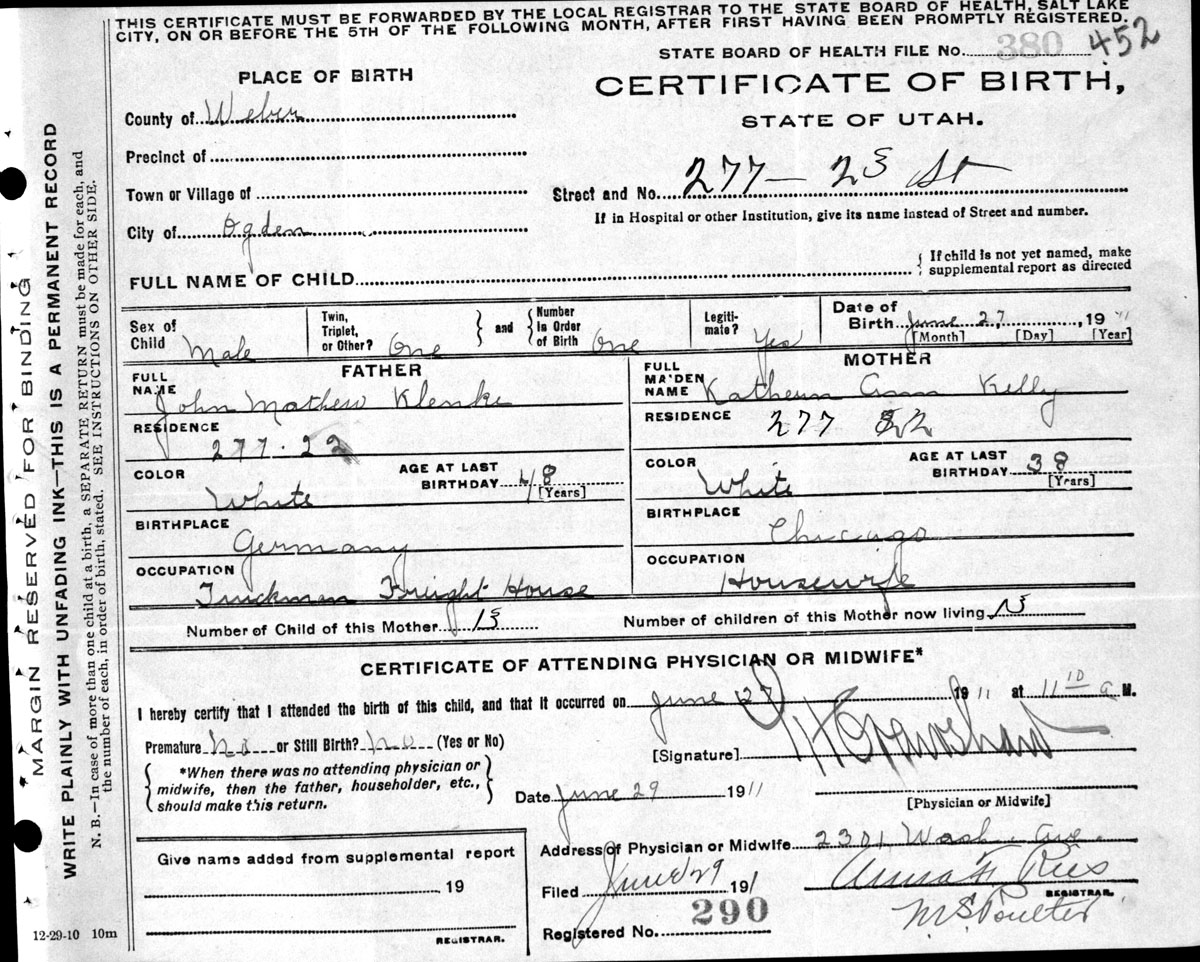 THIS CERTIFICATE MUST BE FORWARDED BY THE LOCAL REGISTRAR TO THE STATE BOARD OF HEALTH, SALT LAKE
CITY, ON OR BEFORE THE 5TH OF THE FOLLOWING MONTH, AFTER FIRST HAVING BEEN PROMPTLY REGISTERED.
STATE BOARD OF HEALTH FILE No. 380 452
PLACE OF BIRTH
CERTIFICATE OF BIRTH,
STATE OF UTAH.
County of Weber
Precinct of
Town or Village of
Street and No. 277 — 2 St
If in Hospital or other Institution, give its name instead of Street and number.
City of Ogden
FULL NAME OF CHILD
{ If child is not yet named, make
supplemental report as directed
Sex of Child Male
Twin, Triplet, or Other? One } and { Number in Order of Birth One
Legiti-mate? Yes
Date of Birth June 27, 19 11
[Month] [Day] [Year]
FATHER
MOTHER
FULL NAME John Mathew Klenke
FULL MAIDEN NAME Ann Kelly
RESIDENCE 277 - 22
RESIDENCE 277 22
COLOR White
AGE AT LAST BIRTHDAY 48 [Years]
COLOR White
AGE AT LAST BIRTHDAY 38 [Years]
BIRTHPLACE Germany
BIRTHPLACE Chicago
OCCUPATION Truckman Freight House
OCCUPATION Housewife
Number of Child of this Mother
Number of children of this Mother now living
CERTIFICATE OF ATTENDING PHYSICIAN OR MIDWIFE*
I hereby certify that I attended the birth of this child, and that it occurred on June 27 1911 at 11 10 a M.
Premature no or Still Birth? no (Yes or No)
[Signature]
{ *When there was no attending physician or
midwife, then the father, householder, etc.,
should make this return. }
Date June 29 1911
[Physician or Midwife]
Address of Physician or Midwife 2301 Wash. Ave.
Give name added from supplemental report
19
REGISTRAR.
Filed June 29 1911
Anna F Rees
REGISTRAR.
M S Poulter
Registered No. 290
12-29-10 10m
*MARGIN RESERVED FOR BINDING
WRITE PLAINLY WITH UNFADING INK—THIS IS A PERMANENT RECORD
N. B.—In case of more than one child at a birth, a SEPARATE RETURN must be made for each, and
the number of each, in order of birth, stated. SEE INSTRUCTIONS ON OTHER SIDE.